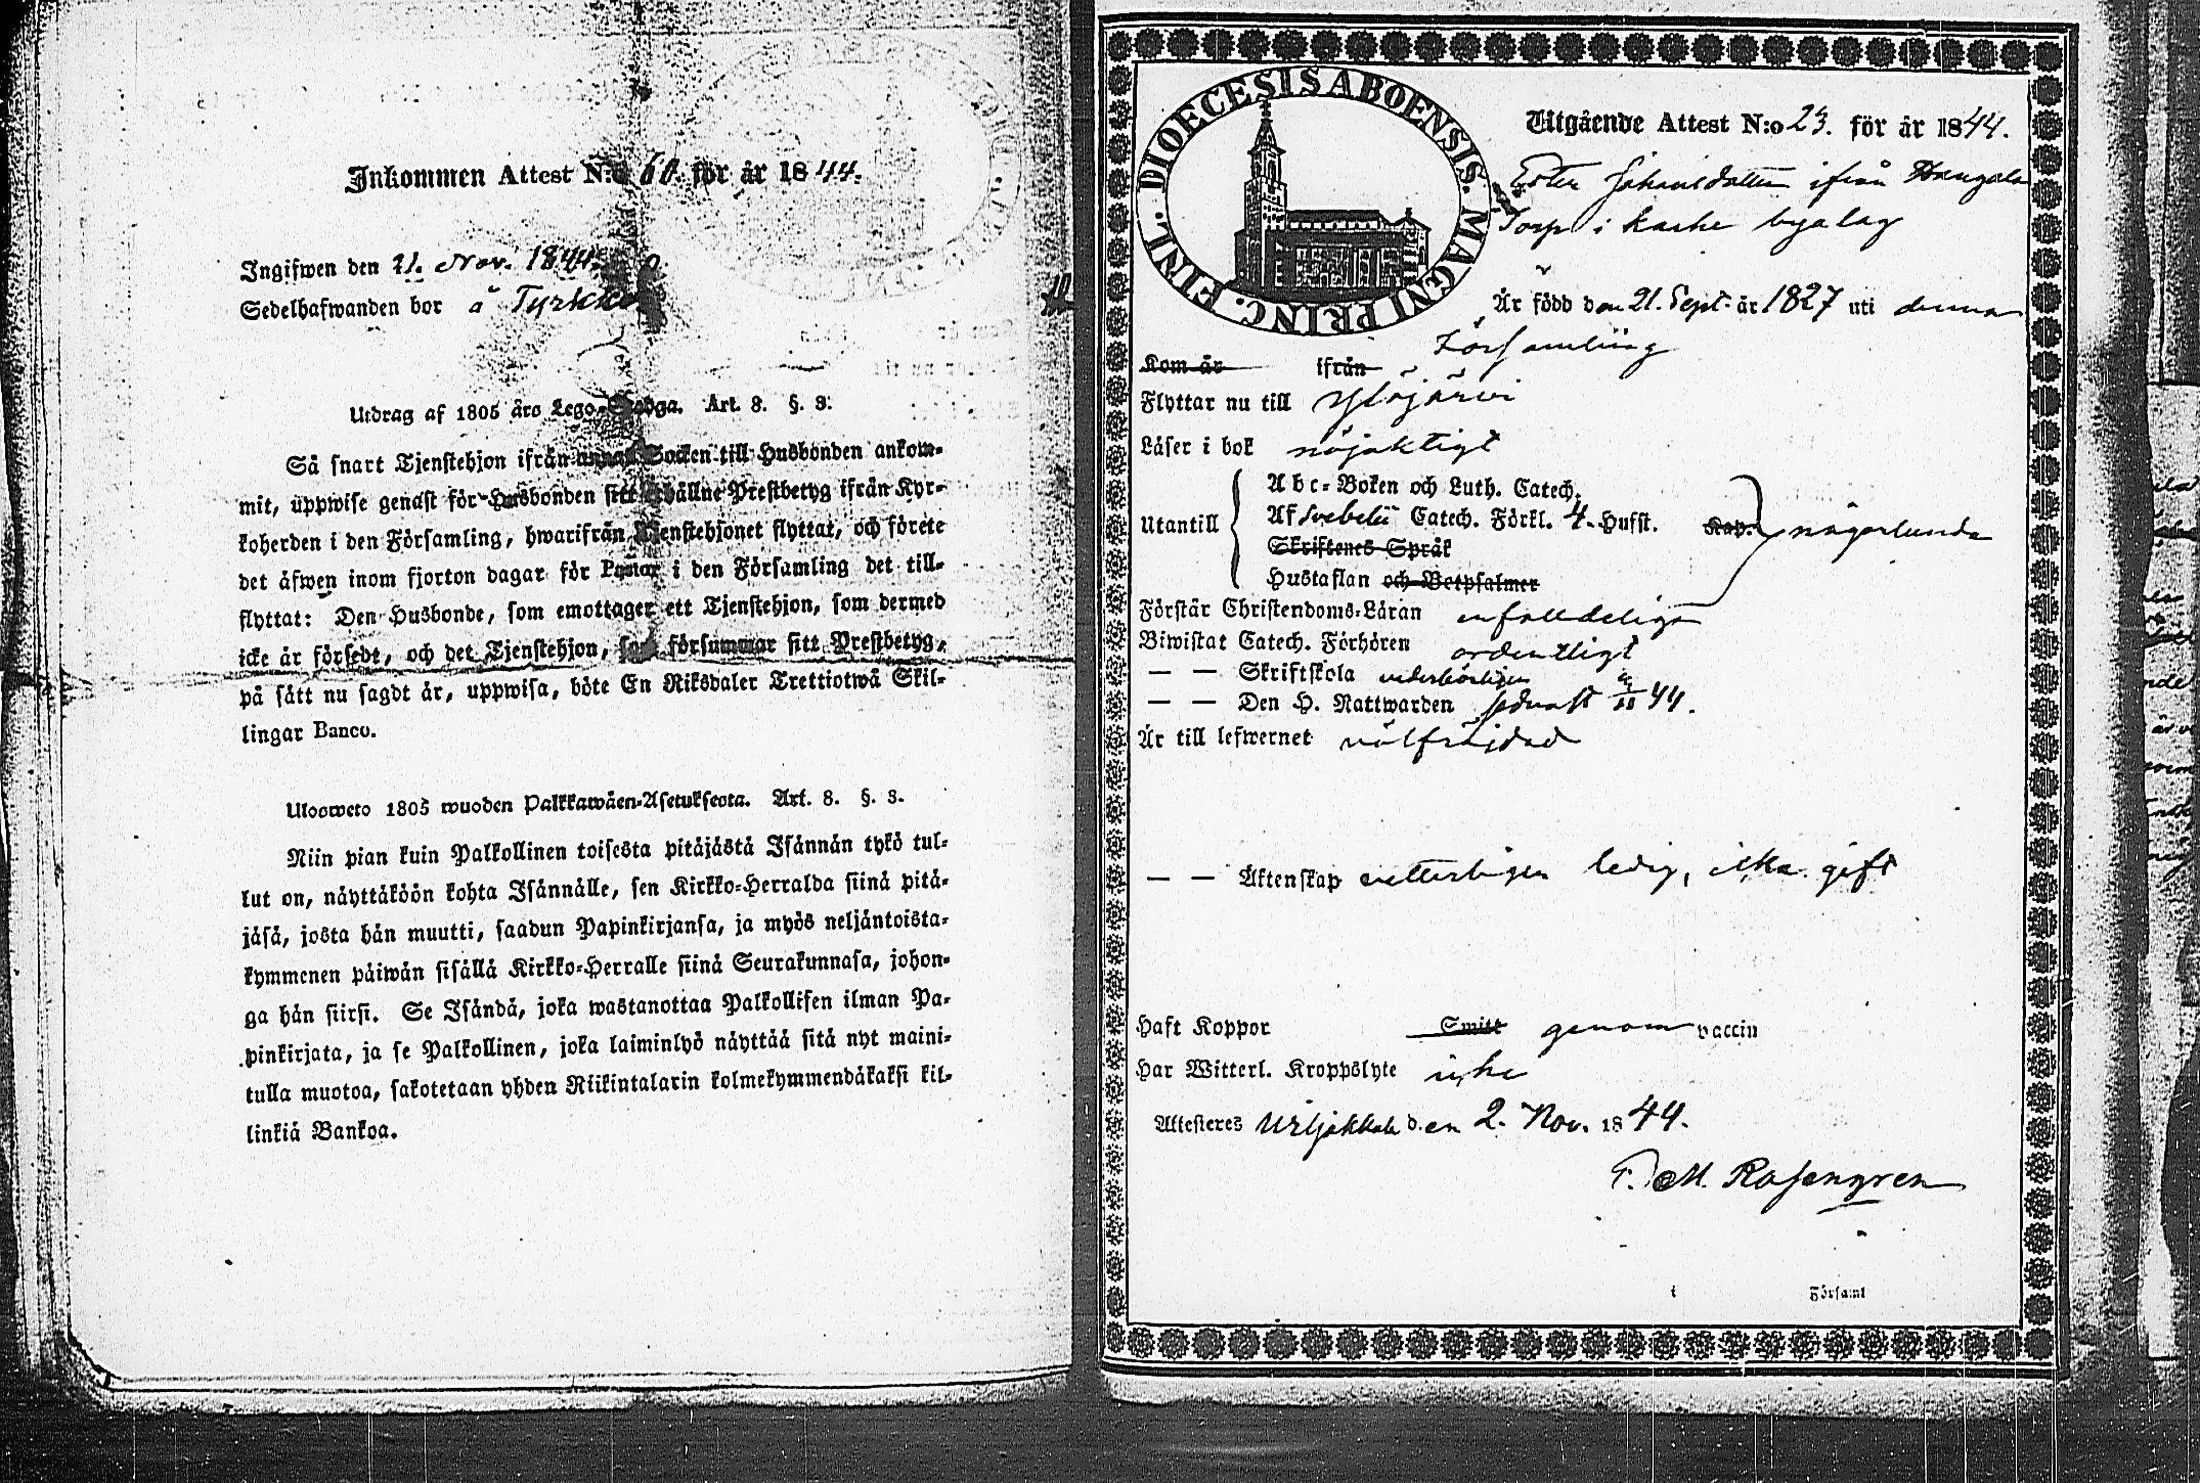 Inkommen Attest N:o 60. för år 1844.
Ingifwen den 21. Nov. 1844.
Sedelhafwanden bor å Tyrkkö
Utdrag af 1805 års Lego-Stadga. Art. 8. §. 3.
Så snart Tjenstehjon ifrån annan Socken till Husbonden ankom-
mit, uppwise genast för Husbonden sitt erhållne Prestbetyg ifrån Kyr-
koherden i den Församling, hwarifrån Tjenstehjonet flyttat, och förete
det äfwen inom fjorton dagar för Pastor i den Församling det till-
flyttat: Den Husbonde, som emottager ett Tjenstehjon, som dermed
icke är försedt, och det Tjenstehjon, som försummar sitt Prestbetyg,
på sätt nu sagdt är, uppwisa, böte En Riksdaler Trettiotwå Skil-
lingar Banco.
Ulosweto 1805 wuoden Palkkawäen-Asetuksesta. Art. 8. §. 3.
Niin pian kuin Palkollinen toisesta pitäjästä Isännän tykö tul-
lut on, näyttäköön kohta Isännälle, sen Kirkko-Herralda siinä pitä-
jäsä, josta hän muutti, saadun Papinkirjansa, ja myös neljäntoista-
kymmenen päiwän sisällä Kirkko-Herralle siinä Seurakunnasa, johon-
ga hän siirsi. Se Isändä, joka wastanottaa Palkollisen ilman Pa-
pinkirjata, ja se Palkollinen, joka laiminlyö näyttää sitä nyt maini-
tulla muotoa, sakotetaan yhden Riikintalarin kolmekymmendäkaksi kil-
linkiä Bankoa.
DIOECESIS ABOENSIS. MAGNI PRINC. FINL.
Utgående Attest N:o 23. för år 1844.
Ester Johansdotter ifrån
Torp i byalag
Är född den 21. Sept. år 1827 uti denna
Församling
Kom år ifrån
Flyttar nu till Ylöjärvi
Läser i bok nöjaktigt
Utantill
Abc-Boken och Luth. Catech.
Af Svebelii Catech. Förkl. 4. Hufst. Kap. någorlunda
Skriftenes Språk
Hustaflan och Botpsalmer
Förstår Christendoms-Läran enfalldeliga
Biwistat Catech. Förhören ordentligt
— — Skriftskola vederbörligen
— — Den H. Nattwarden sednast 44.
Är till lefwernet välfräjdad
— — Äktenskap vetterligen ledig, icke gift
Haft Koppor Smitt genom vaccin
Har Witterl. Kroppslyte icke
Attesteres Wiljakkala den 2. Nov. 1844.
F. M. Rosengren
i Församl